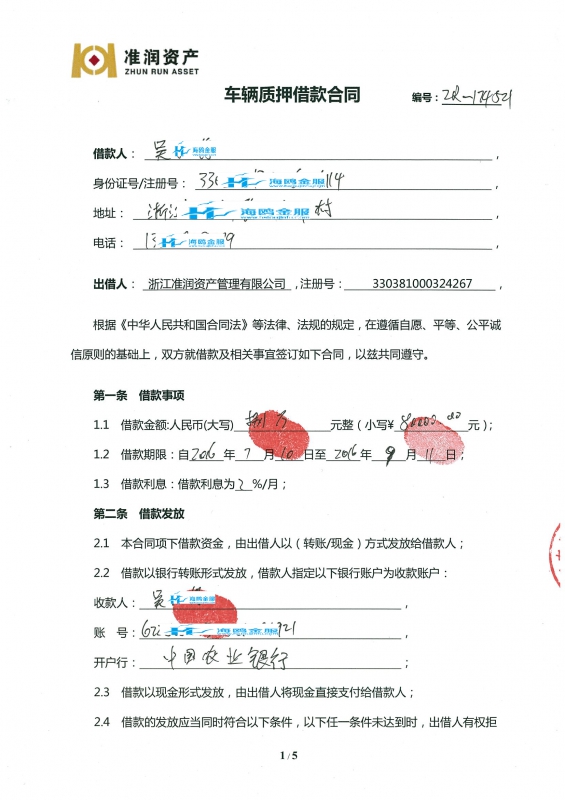 准润资产
ZHUN RUN ASSET
车辆质押借款合同 编号：ZR-174521
借款人：吴 海鸥金服，
身份证号/注册号：33 海鸥金服 114，
地址：浙江 海鸥金服 村，
电话：1 海鸥金服 9，
出借人：浙江准润资产管理有限公司，注册号：330381000324267，
根据《中华人民共和国合同法》等法律、法规的规定，在遵循自愿、平等、公平诚
信原则的基础上，双方就借款及相关事宜签订如下合同，以兹共同遵守。
第一条 借款事项
1.1 借款金额:人民币(大写) 捌万 元整（小写¥ 80000.00 元）；
1.2 借款期限：自2016年7月10日至2016年9月11日；
1.3 借款利息：借款利息为2%/月；
第二条 借款发放
2.1 本合同项下借款资金，由出借人以（转账/现金）方式发放给借款人；
2.2 借款以银行转账形式发放，借款人指定以下银行账户为收款账户：
收款人：吴 海鸥金服，
账 号：62 海鸥金服 321，
开户行：中国农业银行；
2.3 借款以现金形式发放，由出借人将现金直接支付给借款人；
2.4 借款的发放应当同时符合以下条件，以下任一条件未达到时，出借人有权拒
1 / 5